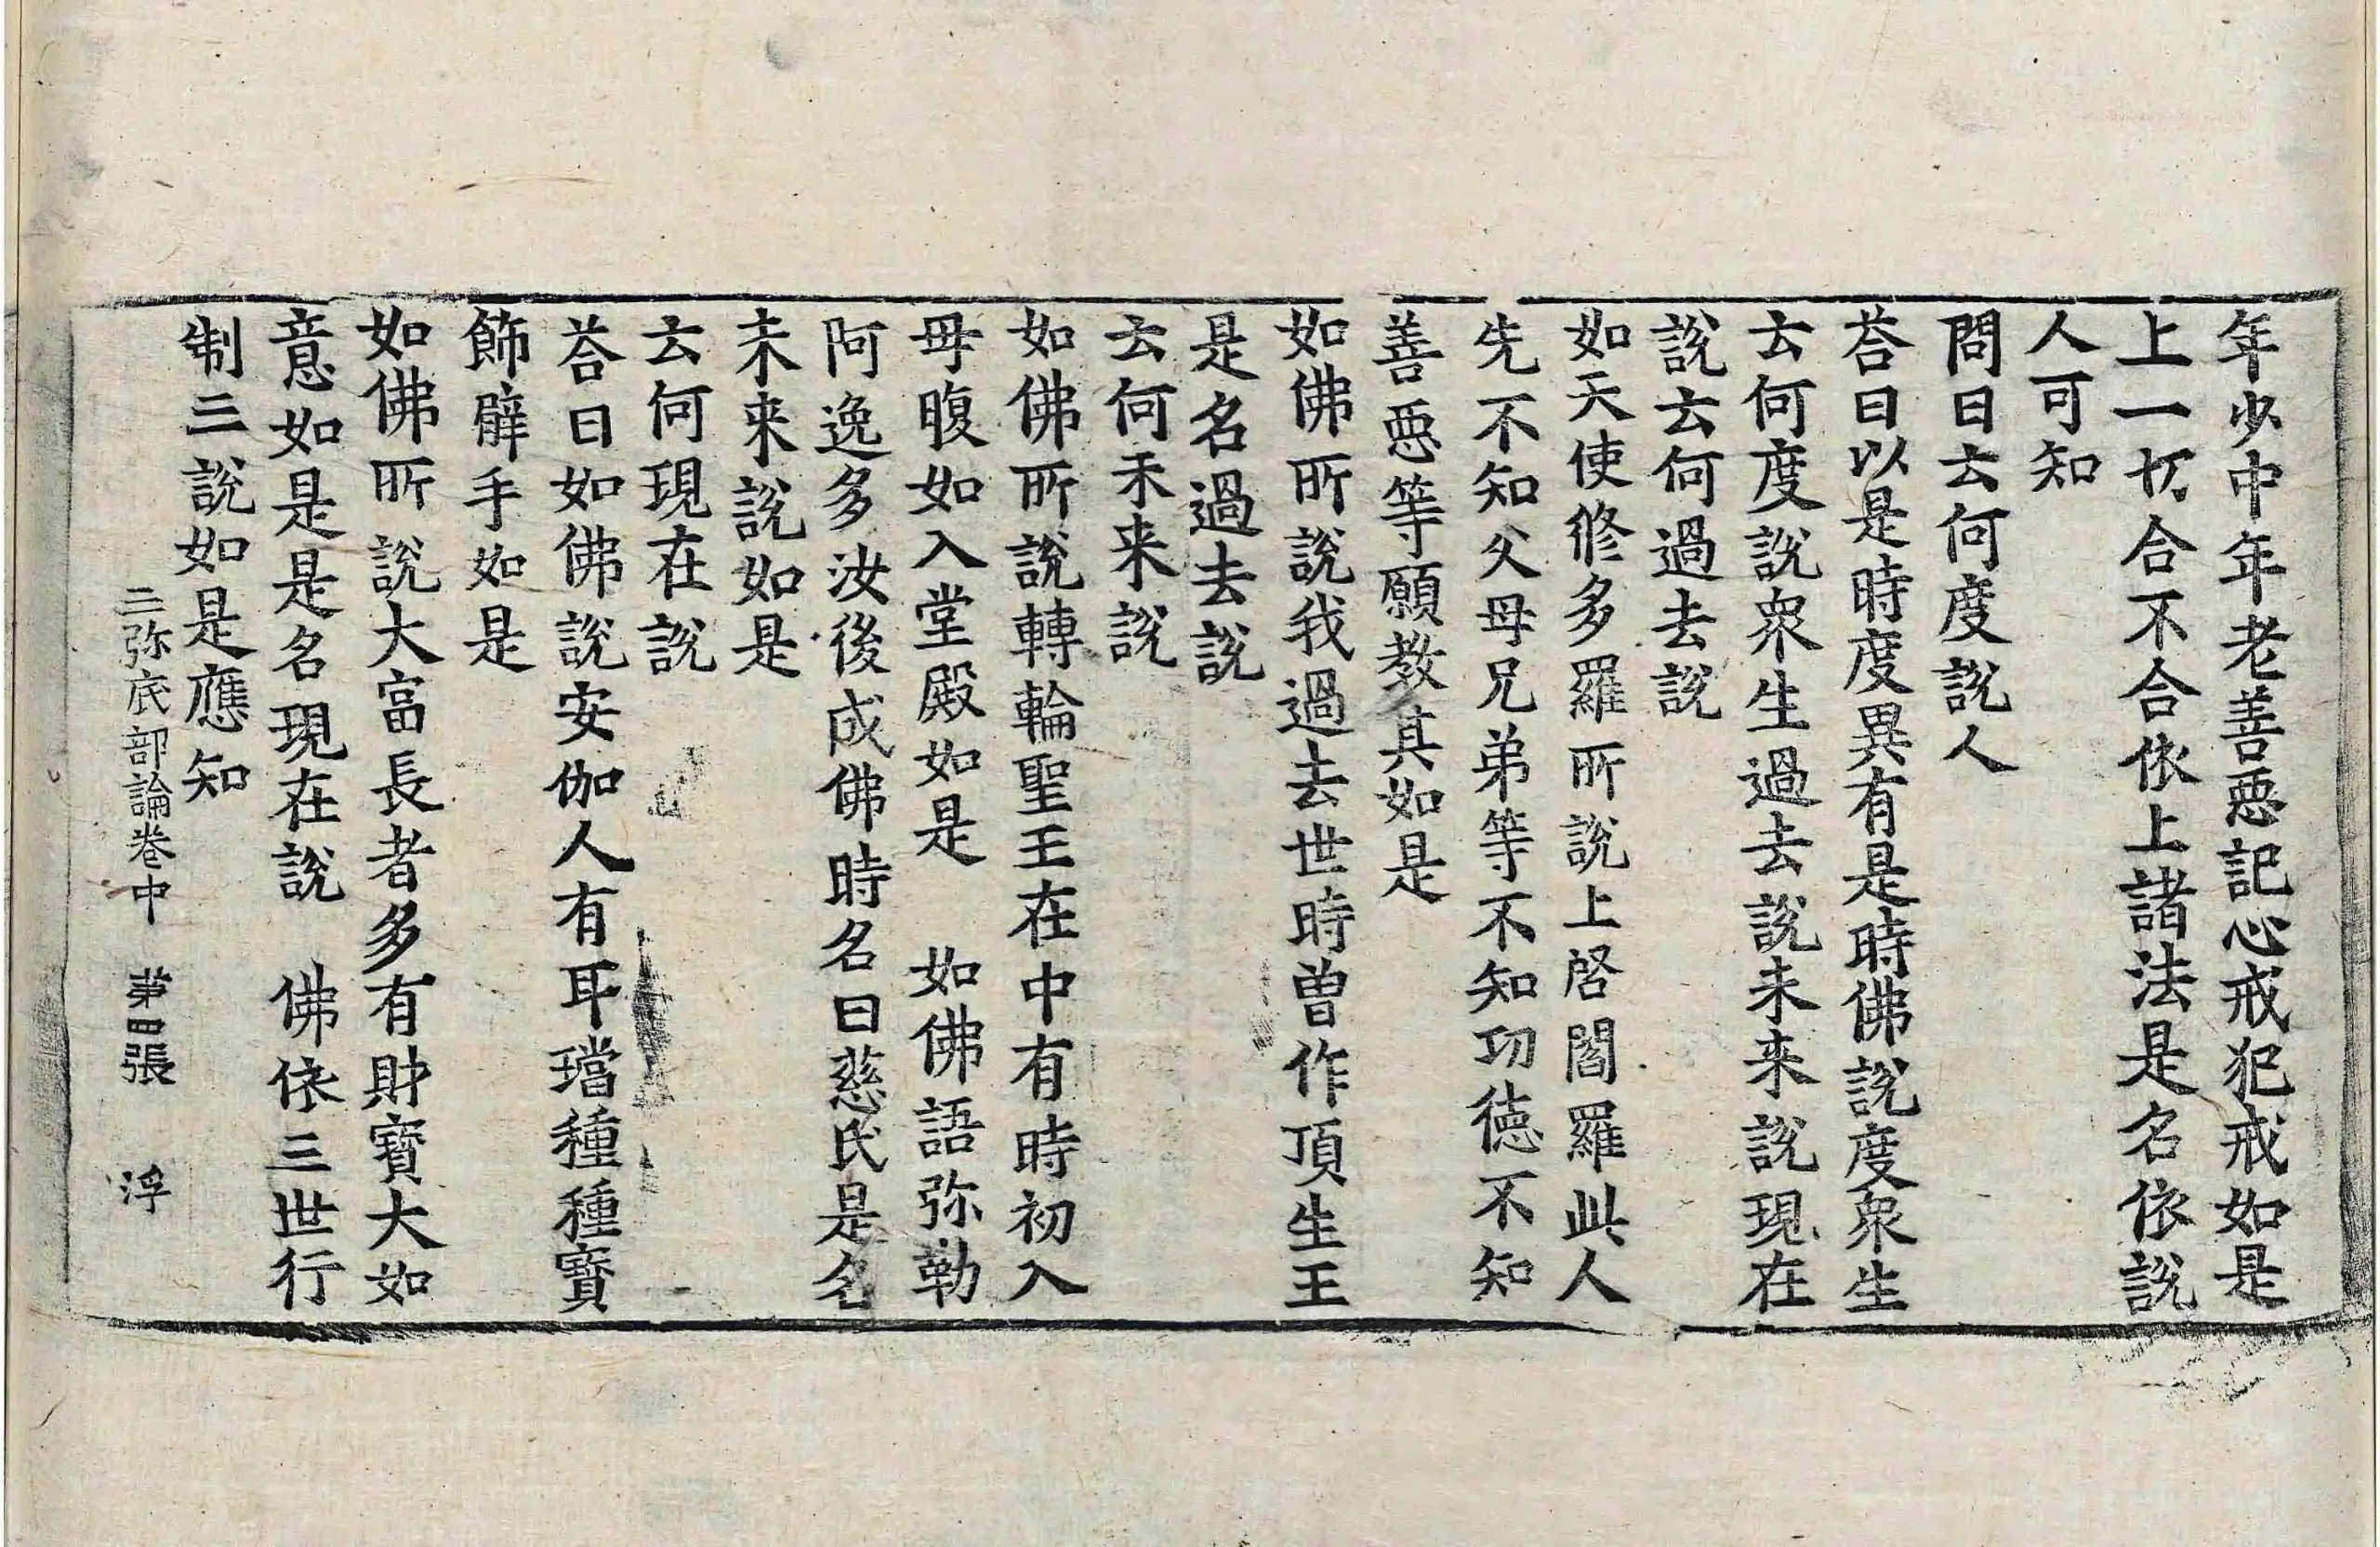 年少中年老善惡記心戒犯戒如是
上一切合不合依上諸法是名依說
人可知
問曰云何度說人
荅曰以是時度異有是時佛說度眾生
云何度說眾生過去說未来說現在
說云何過去說
如天使修多羅所說上啓閻羅此人
先不知父母兄弟等不知功徳不知
善惡等願教其如是
如佛所說我過去世時曽作頂生王
是名過去說
云何未来說
如佛所說轉輪聖王在中有時初入
母腹如入堂殿如是　如佛語弥勒
阿逸多汝後成佛時名曰慈氏是名
未来說如是
云何現在說
荅曰如佛說安伽人有耳璫種種寶
飾臂手如是
如佛所說大富長者多有財寶大如
意如是是名現在說　佛依三世行
制三說如是應知
三弥底部論卷中　第四張　浮